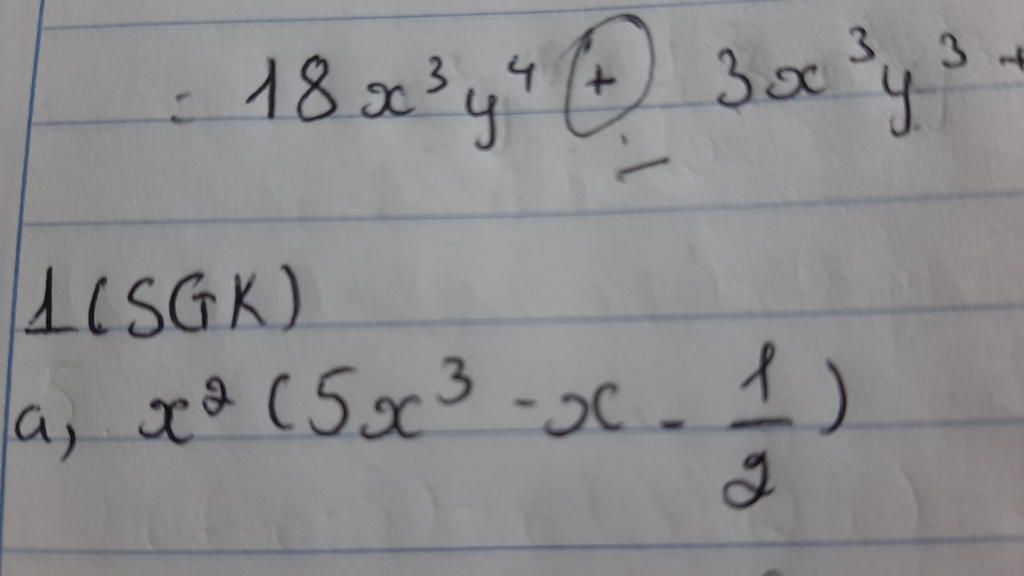 = 18x³y⁴ + 3x³y³ +
−
1 (SGK)
a, x² (5x³ - x - 1/2)